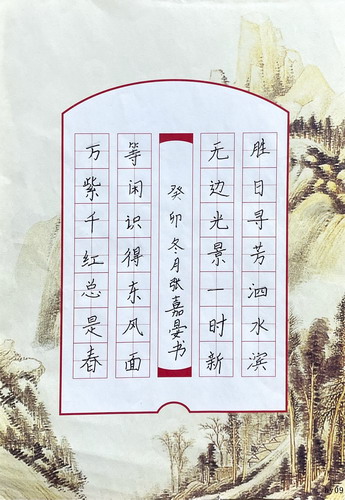 胜日寻芳泗水滨
无边光景一时新
等闲识得东风面
万紫千红总是春
癸卯冬月张嘉晏书